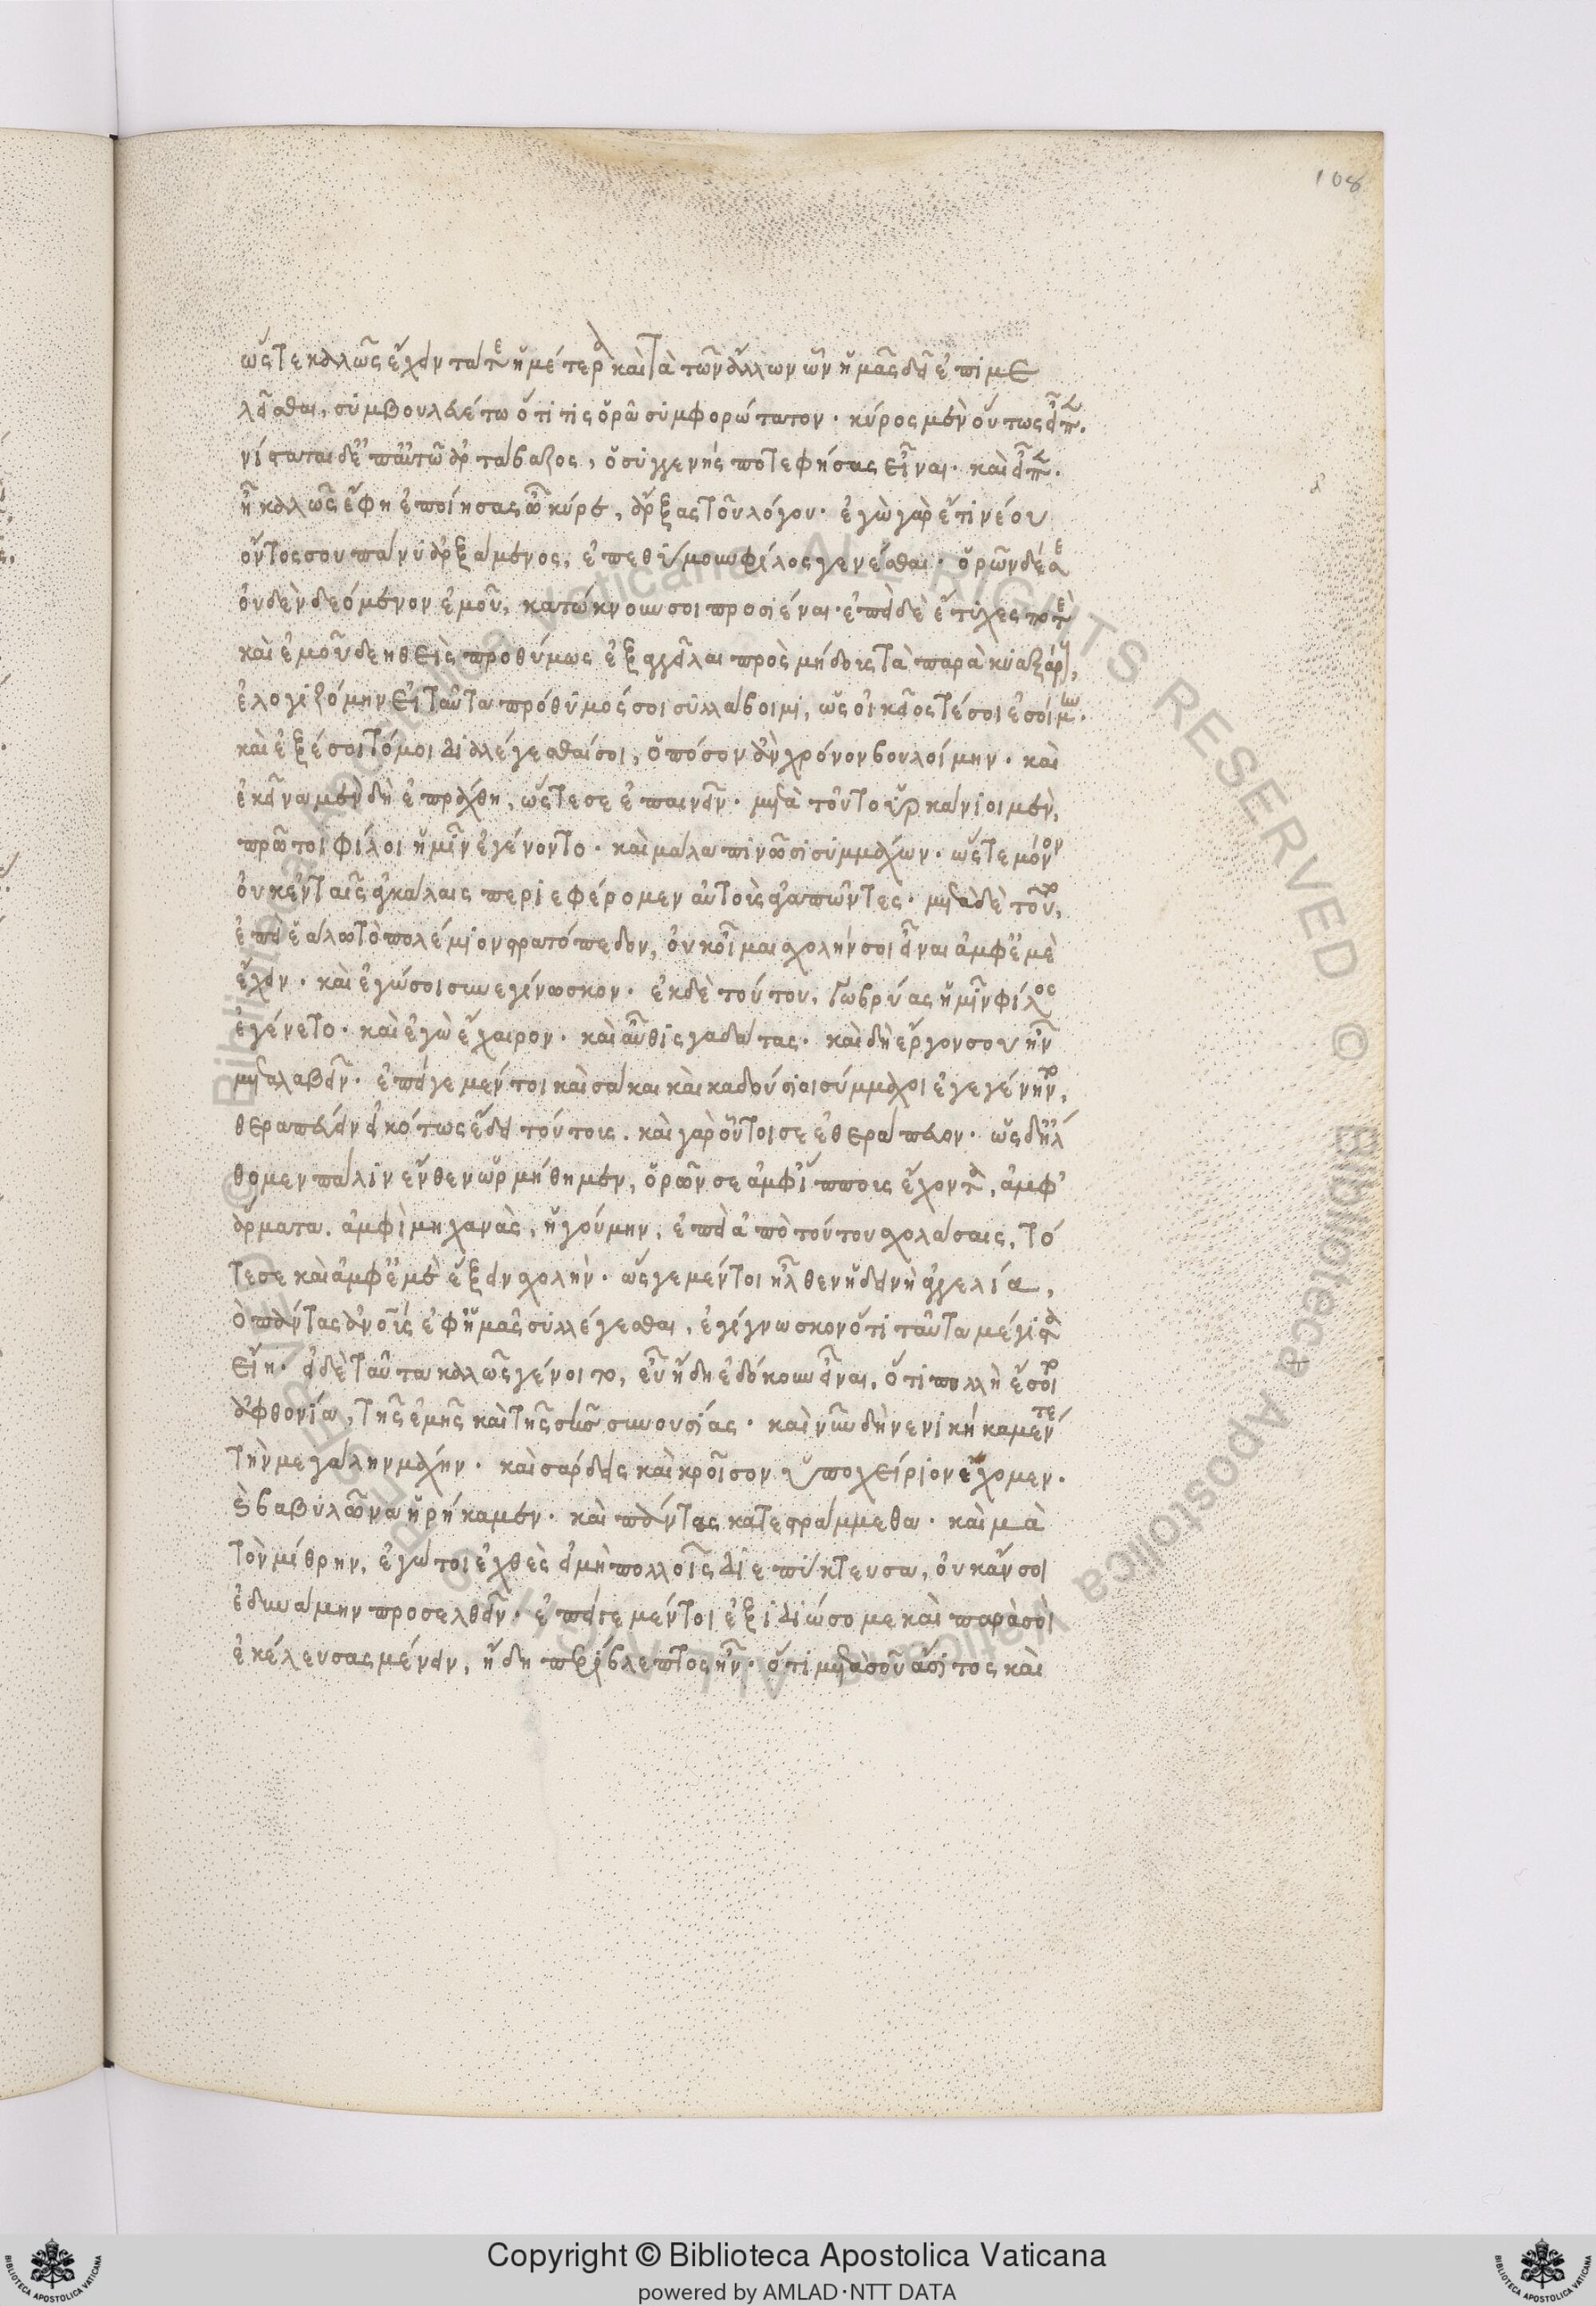 108
ὥστε καλῶς ἔχειν τά τε ἡμέτερα καὶ τὰ τῶν ἄλλων ὧν ἡμᾶς δεῖ ἐπιμε
λεῖσθαι, συμβουλευέτω ὅτι τις ὁρᾶ συμφορώτατον. κύρος μὲν οὕτως εἶπεν.
νίσταται δ' ἐπ' αὐτῶ ἀρτάβαζος, ὁ συγγενής ποτε φήσας εἶναι. καὶ εἶπεν.
ἦ καλῶς ἔφη ἐποίησας ὦ κύρε, ἄρξας τοῦ λόγου. ἐγὼ γὰρ ἔτι νέου
ὄντος σου πάνυ ἀρξάμενος, ἐπεθύμουν φίλος γενέσθαι. ὁρῶν δέ σε
οὐδὲν δεόμενον ἐμοῦ, κατώκνουν σοι προσιέναι. ἐπεὶ δὲ ἔτυχές ποτε
καὶ ἐμοῦ δεηθεὶς προθύμως ἐξαγγεῖλαι πρὸς μήδους τὰ παρὰ κυαξάρου,
ἐλογιζόμην εἰ ταῦτα πρόθυμός σοι συλλάβοιμι, ὡς οἰκεῖός τέ σοι ἐσοίμην.
καὶ ἐξέσοιτό μοι διαλέγεσθαί σοι, ὁπόσον ἂν χρόνον βουλοίμην. καὶ
ἐκεῖνα μὲν δὴ ἐπράχθη, ὥστε σε ἐπαινεῖν. μετὰ τοῦτο ὑρκάνιοι μὲν,
πρῶτοι φίλοι ἡμῖν ἐγένοντο. καὶ μάλα πινῶσι συμμάχων. ὥστε μόνον
οὐκ ἐν ταῖς ἀγκάλαις περιεφέρομεν αὐτοὺς ἀγαπῶντες. μετὰ δὲ τοῦτο,
ἐπεὶ ἑάλω τὸ πολέμιον στρατόπεδον, οὐκ οἶμαι σχολήν σοι εἶναι ἀμφ' ἐμὲ
ἔχειν. καὶ ἐγώ σοι συνεγίνωσκον. ἐκ δὲ τούτου, γωβρύας ἡμῖν φίλος
ἐγένετο. καὶ ἐγὼ ἔχαιρον. καὶ αὖθις γαδάτας. καὶ δὴ ἔργον σου ἦν
μεταλαβεῖν. ἐπεί γε μέντοι καὶ σάκαι καὶ καδούσιοι σύμμαχοι ἐγεγένηντο,
θεραπεύειν εἰκότως ἔδει τούτους. καὶ γὰρ οὗτοι σε ἐθεράπευον. ὡς δ' ἤλ
θομεν πάλιν ἔνθεν ὡρμήθημεν, ὁρῶν σε ἀμφ' ἵππους ἔχοντα, ἀμφ'
ἅρματα. ἀμφὶ μηχανὰς, ἡγούμην, ἐπεὶ ἀπὸ τούτου σχολάσαις, τό
τε σε καὶ ἀμφ' ἐμὲ ἕξειν σχολήν. ὥς γε μέντοι ἦλθεν ἡ δεινὴ ἀγγελία,
ὁ πάντας ἀνθρώπους ἐφ' ἡμᾶς συλλέγεσθαι, ἐγίγνωσκον ὅτι ταῦτα μέγιστα
εἴη. εἰ δὲ ταῦτα καλῶς γένοιτο, εὖ ἤδη ἐδόκουν εἶναι, ὅτι πολλὴ ἔσοιτο
ἀφθονία, τῆς ἐμῆς καὶ τῆς σῆς συνουσίας. καὶ νῦν δὴ νενικήκαμέν τε
τὴν μεγάλην μάχην. καὶ σάρδεις καὶ κροῖσον ὑποχείριον ἔχομεν.
καὶ βαβυλῶνα ᾑρήκαμεν. καὶ πάντας κατεστράμμεθα. καὶ μὰ
τὸν μίθρην, ἐγώ τοι ἐχθὲς εἰ μὴ πολλοῖς διεπύκτευσα, οὐκ ἄν σοι
ἐδυνάμην προσελθεῖν. ἐπεί γε μέντοι ἐξιδιώσω με καὶ παρὰ σοὶ
ἐκέλευσας μένειν, ἤδη περίβλεπτος ἦν. ὅτι μετὰ σοῦ ἄσιτος καὶ
Copyright © Biblioteca Apostolica Vaticana
powered by AMLAD·NTT DATA